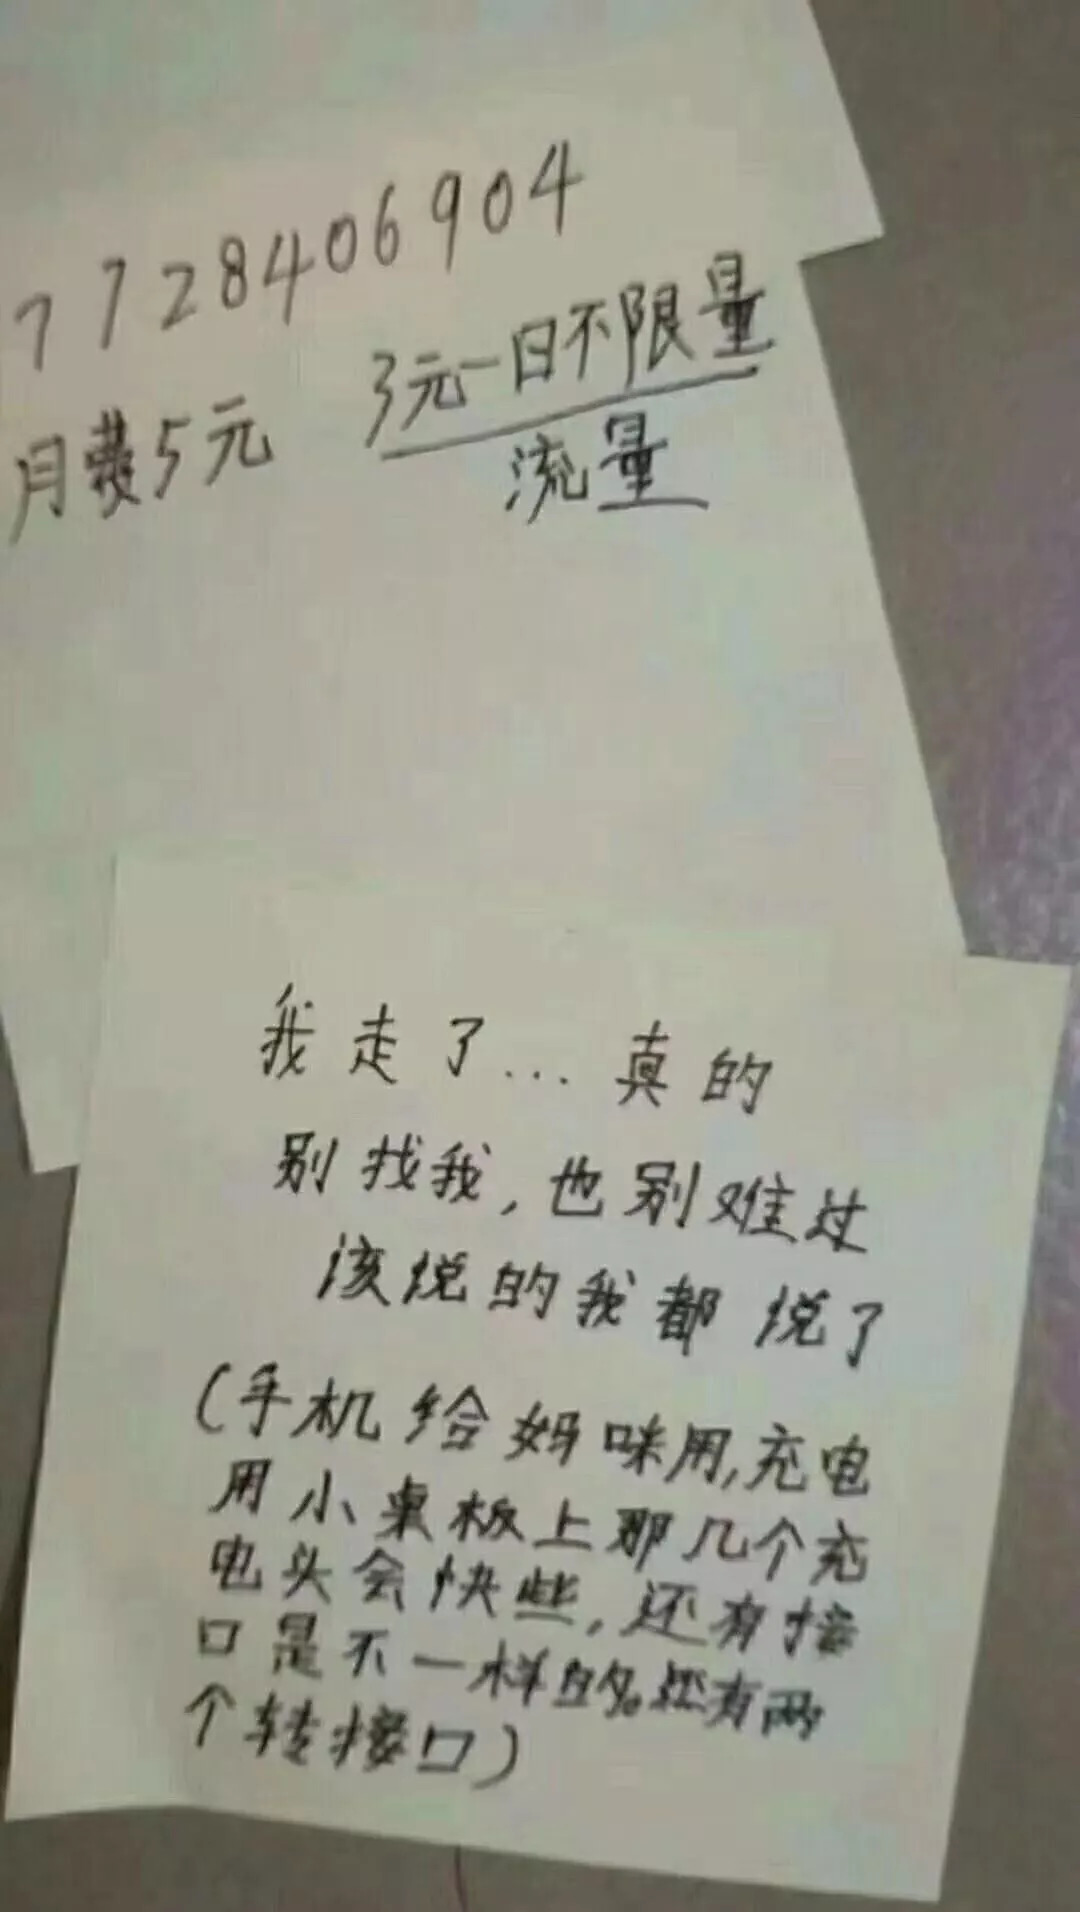 7728406904
月费5元 3元一日不限量
流量
我走了...真的
别找我,也别难过
该说的我都说了
(手机给妈咪用,充电
用小桌板上那几个充
电头会快些,还有接
口是不一样的。还有两
个转接口)